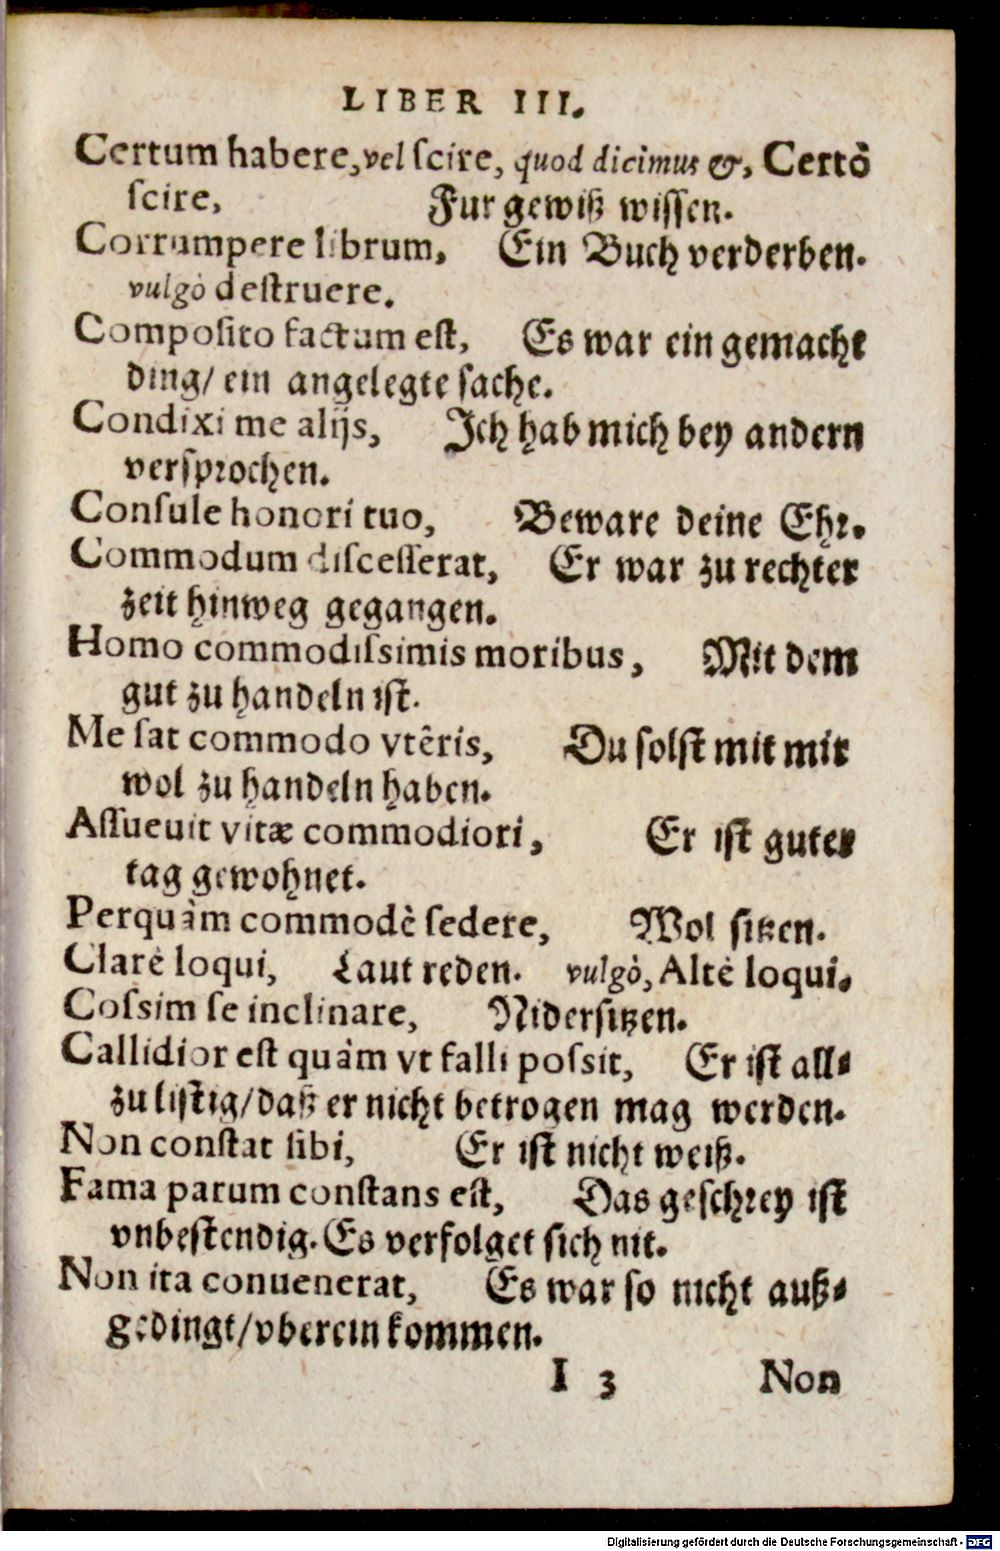 LIBER III.
Certum habere, vel ſcire, quod dicimus &, Certò
ſcire, Fur gewiß wiſſen.
Corrumpere librum, Ein Buch verderben.
vulgò deſtruere.
Compoſito factum eſt, Es war ein gemacht
ding/ ein angelegte ſache.
Condixi me alijs, Ich hab mich bey andern
verſprochen.
Conſule honori tuo, Beware deine Ehr.
Commodum diſceſſerat, Er war zu rechter
zeit hinweg gegangen.
Homo commodiſsimis moribus, Mit dem
gut zu handeln iſt.
Me ſat commodo vtêris, Du ſolſt mit mir
wol zu handeln haben.
Aſſueuit vitæ commodiori, Er iſt guter
tag gewohnet.
Perquàm commodè ſedere, Wol ſitzen.
Clarè loqui, Laut reden. vulgò, Altè loqui.
Coſsim ſe inclinare, Niderſitzen.
Callidior eſt quàm vt falli poſsit, Er iſt all⸗
zu liſtig/ daß er nicht betrogen mag werden.
Non conſtat ſibi, Er iſt nicht weiß.
Fama parum conſtans eſt, Das geſchrey iſt
vnbeſtendig. Es verfolget ſich nit.
Non ita conuenerat, Es war ſo nicht auß⸗
gedingt/ vberein kommen.
I 3 Non
Digitalisierung gefördert durch die Deutsche Forschungsgemeinschaft - DFG